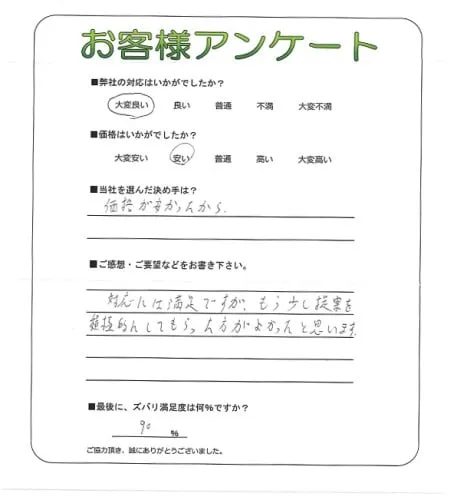 お客様アンケート
■弊社の対応はいかがでしたか?
大変良い 良い 普通 不満 大変不満
■価格はいかがでしたか?
大変安い 安い 普通 高い 大変高い
■当社を選んだ決め手は?
価格が安かったから.
■ご感想・ご要望などをお書き下さい。
対応には満足ですが、もう少し提案を
積極的にしてもらった方がよかったと思います.
■最後に、ズバリ満足度は何%ですか?
90 %
ご協力頂き、誠にありがとうございました。